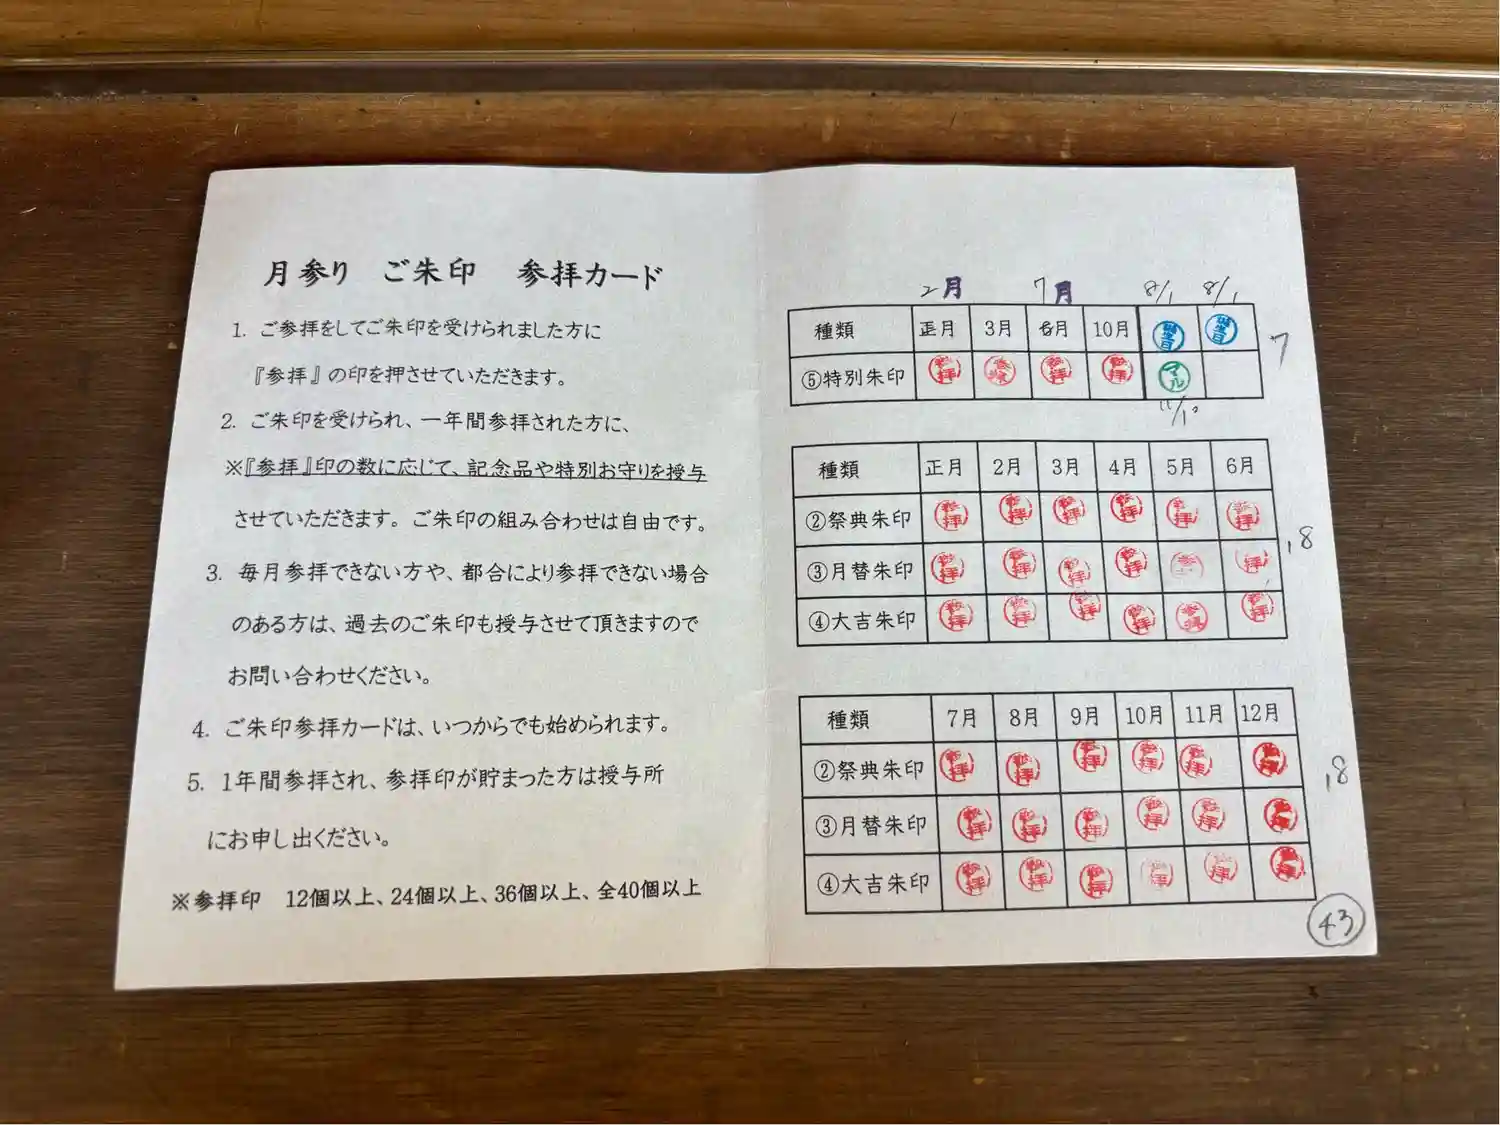 月参り ご朱印 参拝カード
1. ご参拝をしてご朱印を受けられました方に
『参拝』の印を押させていただきます。
2. ご朱印を受けられ、一年間参拝された方に、
※『参拝』印の数に応じて、記念品や特別お守りを授与
させていただきます。ご朱印の組み合わせは自由です。
3. 毎月参拝できない方や、都合により参拝できない場合
のある方は、過去のご朱印も授与させて頂きますので
お問い合わせください。
4. ご朱印参拝カードは、いつからでも始められます。
5. 1年間参拝され、参拝印が貯まった方は授与所
にお申し出ください。
※参拝印 12個以上、24個以上、36個以上、全40個以上
2月 7月 8/1 8/1
種類 正月 3月 6月 10月 誕生日 誕生日
7
⑤特別朱印 参拝 参拝 参拝 参拝 マル
11/10
種類 正月 2月 3月 4月 5月 6月
②祭典朱印 参拝 参拝 参拝 参拝 参拝 参拝
18
③月替朱印 参拝 参拝 参拝 参拝 参 拝
④大吉朱印 参拝 参拝 参拝 参拝 参拝 参拝
種類 7月 8月 9月 10月 11月 12月
②祭典朱印 参拝 参拝 参拝 参拝 参拝 参拝
18
③月替朱印 参拝 参拝 参拝 参拝 参拝 参拝
④大吉朱印 参拝 参拝 参拝 参拝 参拝 参拝
43